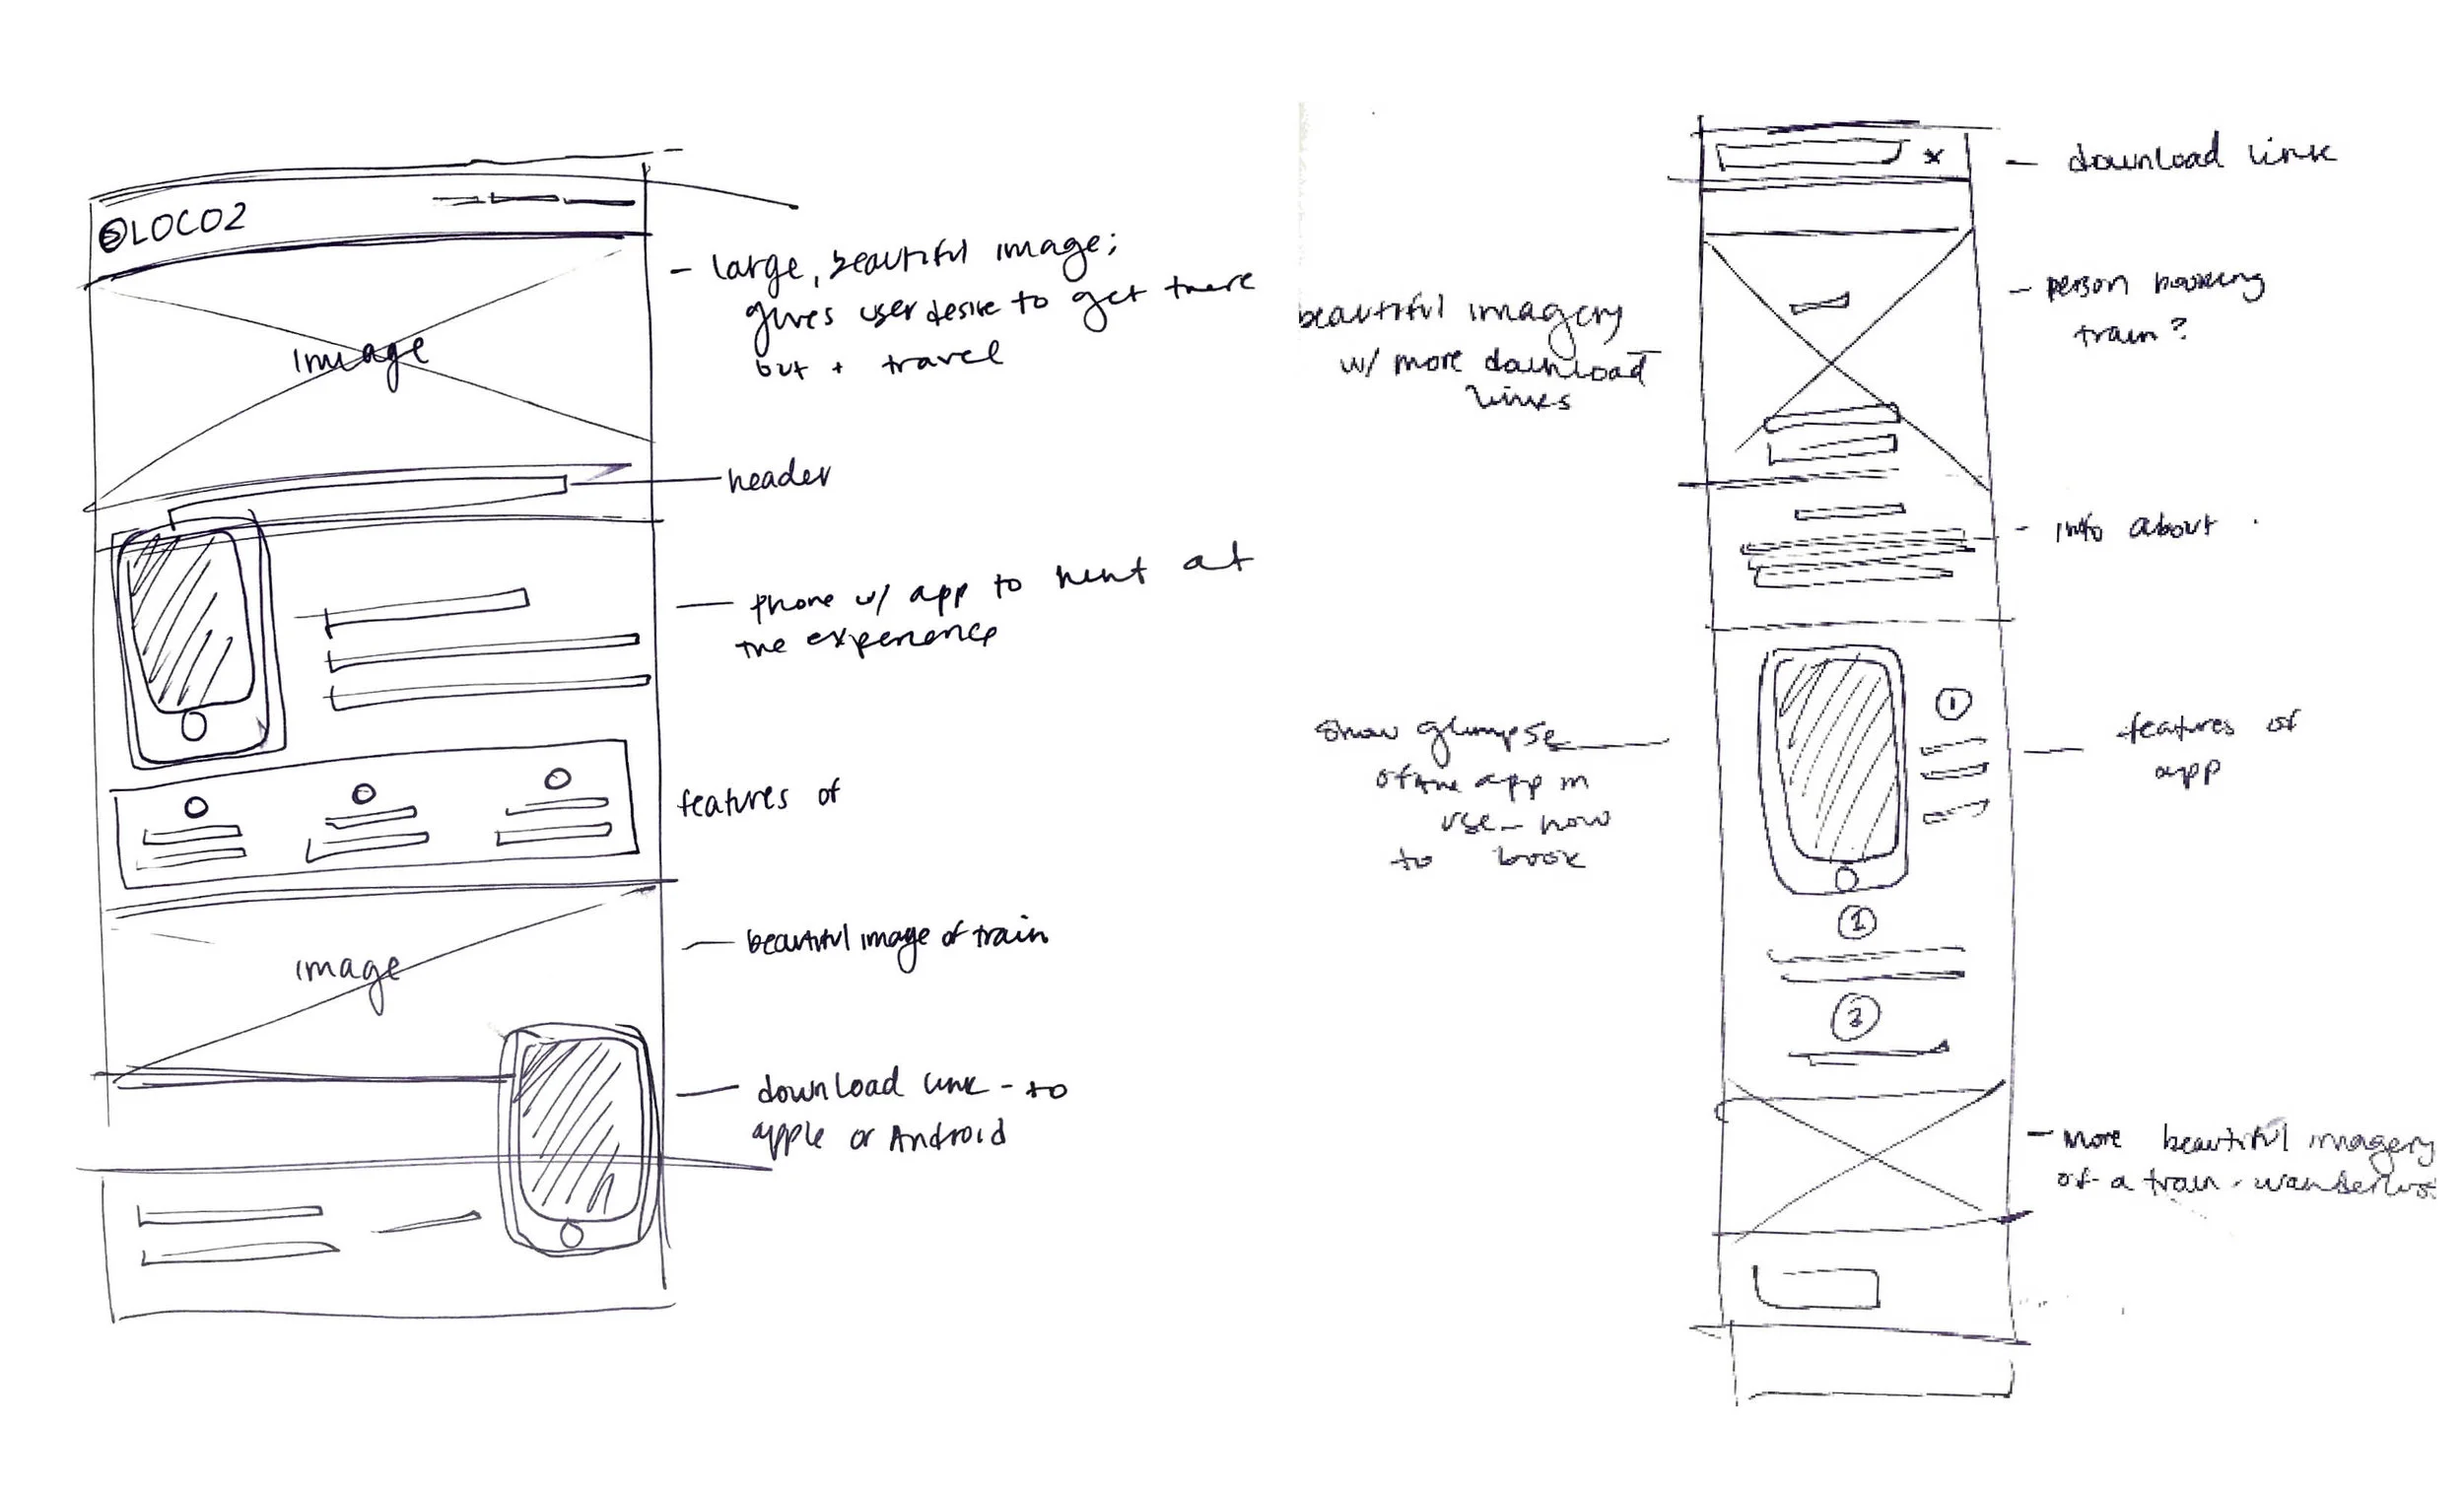 LOCO2
image
- large, beautiful image;
gives user desire to get there
but + travel
header
phone w/ app to hint at
the experience
features of
image
beautiful image of train
download link - to
apple or Android
x
- download link
beautiful imagery
w/ more download
links
- person
train?
- info about
show glimpse
of the app in
use - how
to book
1
features of
app
2
3
- more beautiful imagery
of a train